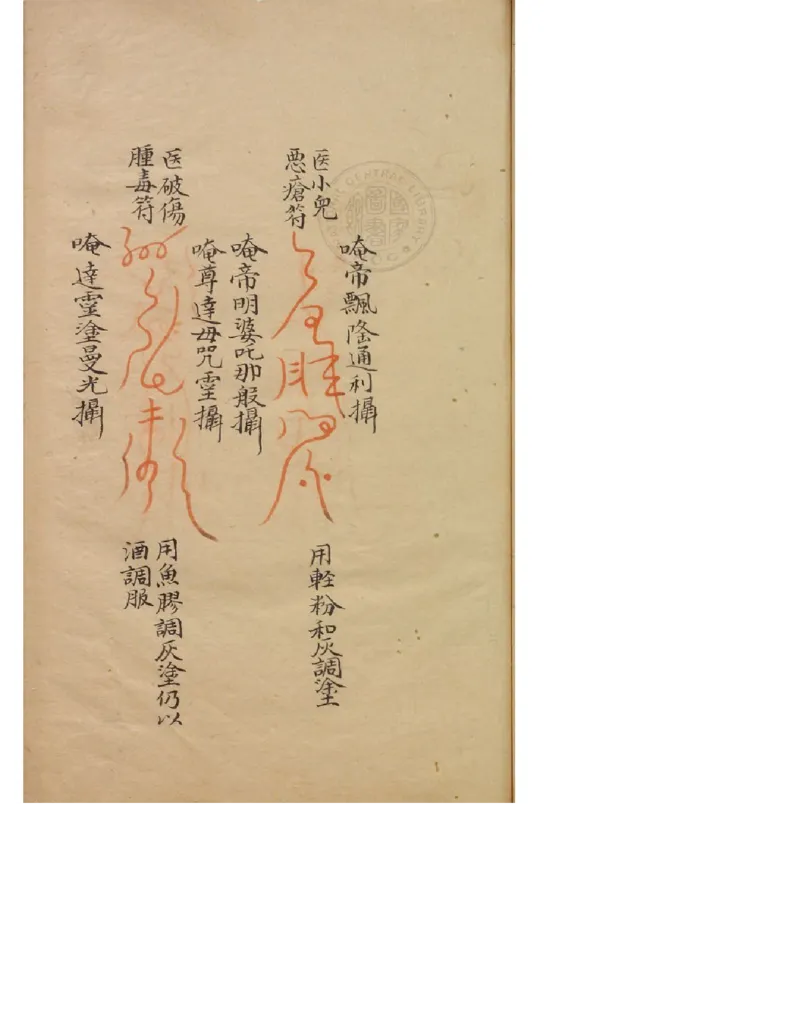 唵帝飄隆通利攝
医小兒
悪瘡符
用軽粉和灰調塗
唵帝明婆吒那般攝
唵尊達毋咒霊攝
医破傷
腫毒符
用魚膠調灰塗仍以
酒調服
唵達霊塗曼光攝